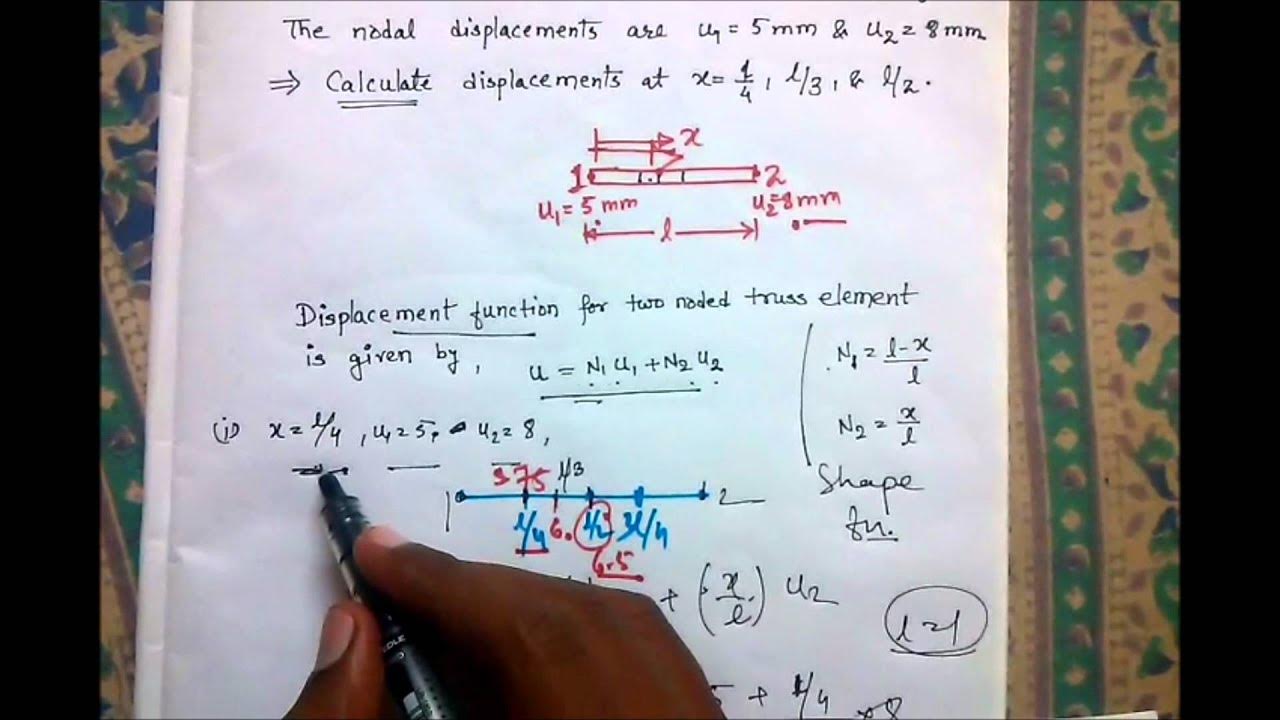 The nodal displacements are u₁ = 5 mm & u₂ = 8 mm
⇒ Calculate displacements at x = 1/4, l/3, & l/2.
x
1 2
u₁ = 5 mm u₂=8mm
l
Displacement function for two noded truss element
is given by, u = N₁ u₁ + N₂ u₂
N₁ = l-x/l
N₂ = x/l
Shape
fn.
(i) x = l/4, u₁ = 5, u₂ = 8,
5 75 l/3
1 2
l/4 6. l/2 3l/4
6.5
+ (x/l) u₂
l=1
5 + l/4 ×8